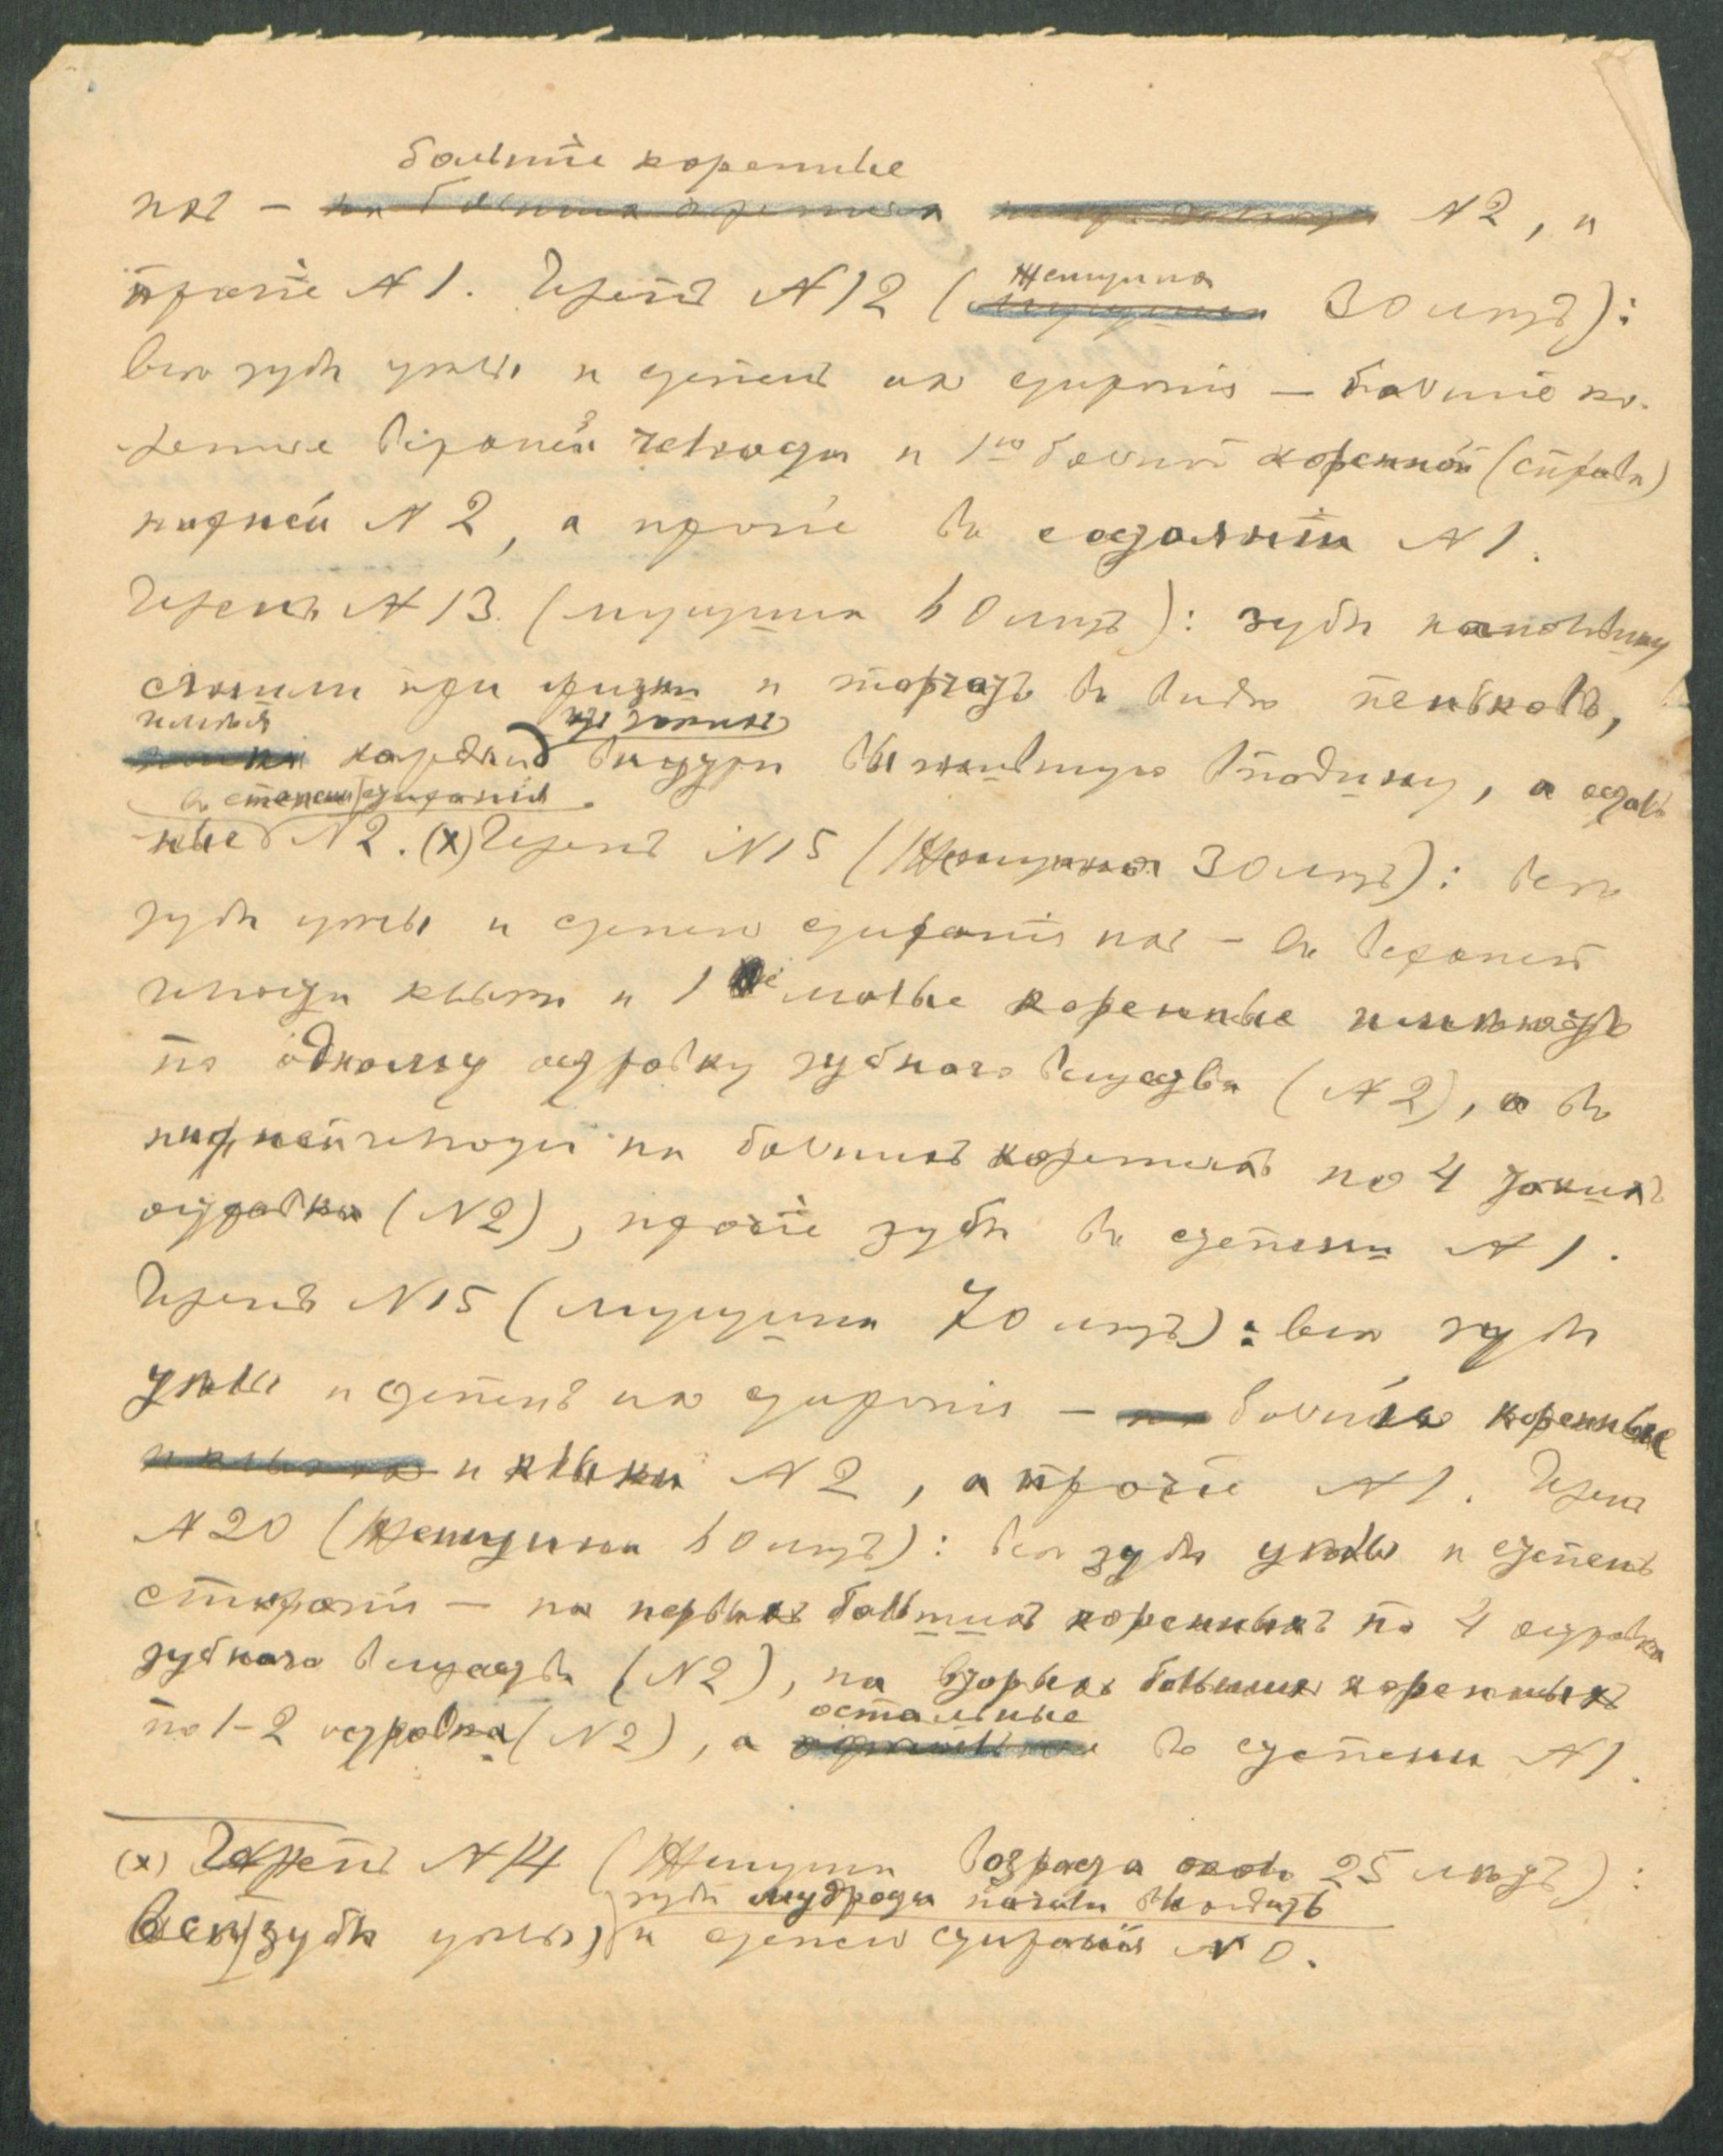 большіе коренные
ихъ — N 2, и
прочіе N 1. Черепъ N 12 (Женщина 30 лѣтъ):
всѣ зубы цѣлы и степень их стиранія — большіе ко-
ренные верхней челюсти и 1ый большой коренной (справа)
нижней N 2, а прочіе въ состояніи N 1.
Черепъ N 13 (мущина 60 лѣтъ): зубы наполовину
и торчатъ въ видѣ пеньковъ,
имѣя изъ такихъ
каждый внутри выжившую впадину, а осталь
въ степени стиранія
ные N 2. (х) Черепъ N 15 (Женщина 30 лѣтъ): всѣ
зубы цѣлы и степень стиранія ихъ — въ верхней
челюсти клыки и 1ые малые коренные имѣютъ
по одному островку зубного вещества (N 2), а въ
нижней челюсти на большихъ коренныхъ по 4 такихъ
островка (N 2), прочіе зубы въ степени N 1.
Черепъ N 15 (мущина 70 лѣтъ): всѣ зубы
цѣлы и степень их стиранія — большіе коренные
и клыки N 2, а прочіе N 1. Черепъ
N 20 (Женщина 60 лѣтъ): всѣ зубы цѣлы и степень
стиранія — на первыхъ большихъ коренныхъ по 4 островка
зубного вещества (N 2), на вторыхъ большихъ коренныхъ
остальные
по 1-2 островка (N 2), а въ степени N 1.
(х) Черепъ N 14 (Женщина возраста около 25 лѣтъ):
зубы мудрости начали выходить
Всѣ зубы цѣлы, и степень стиранія N 0.